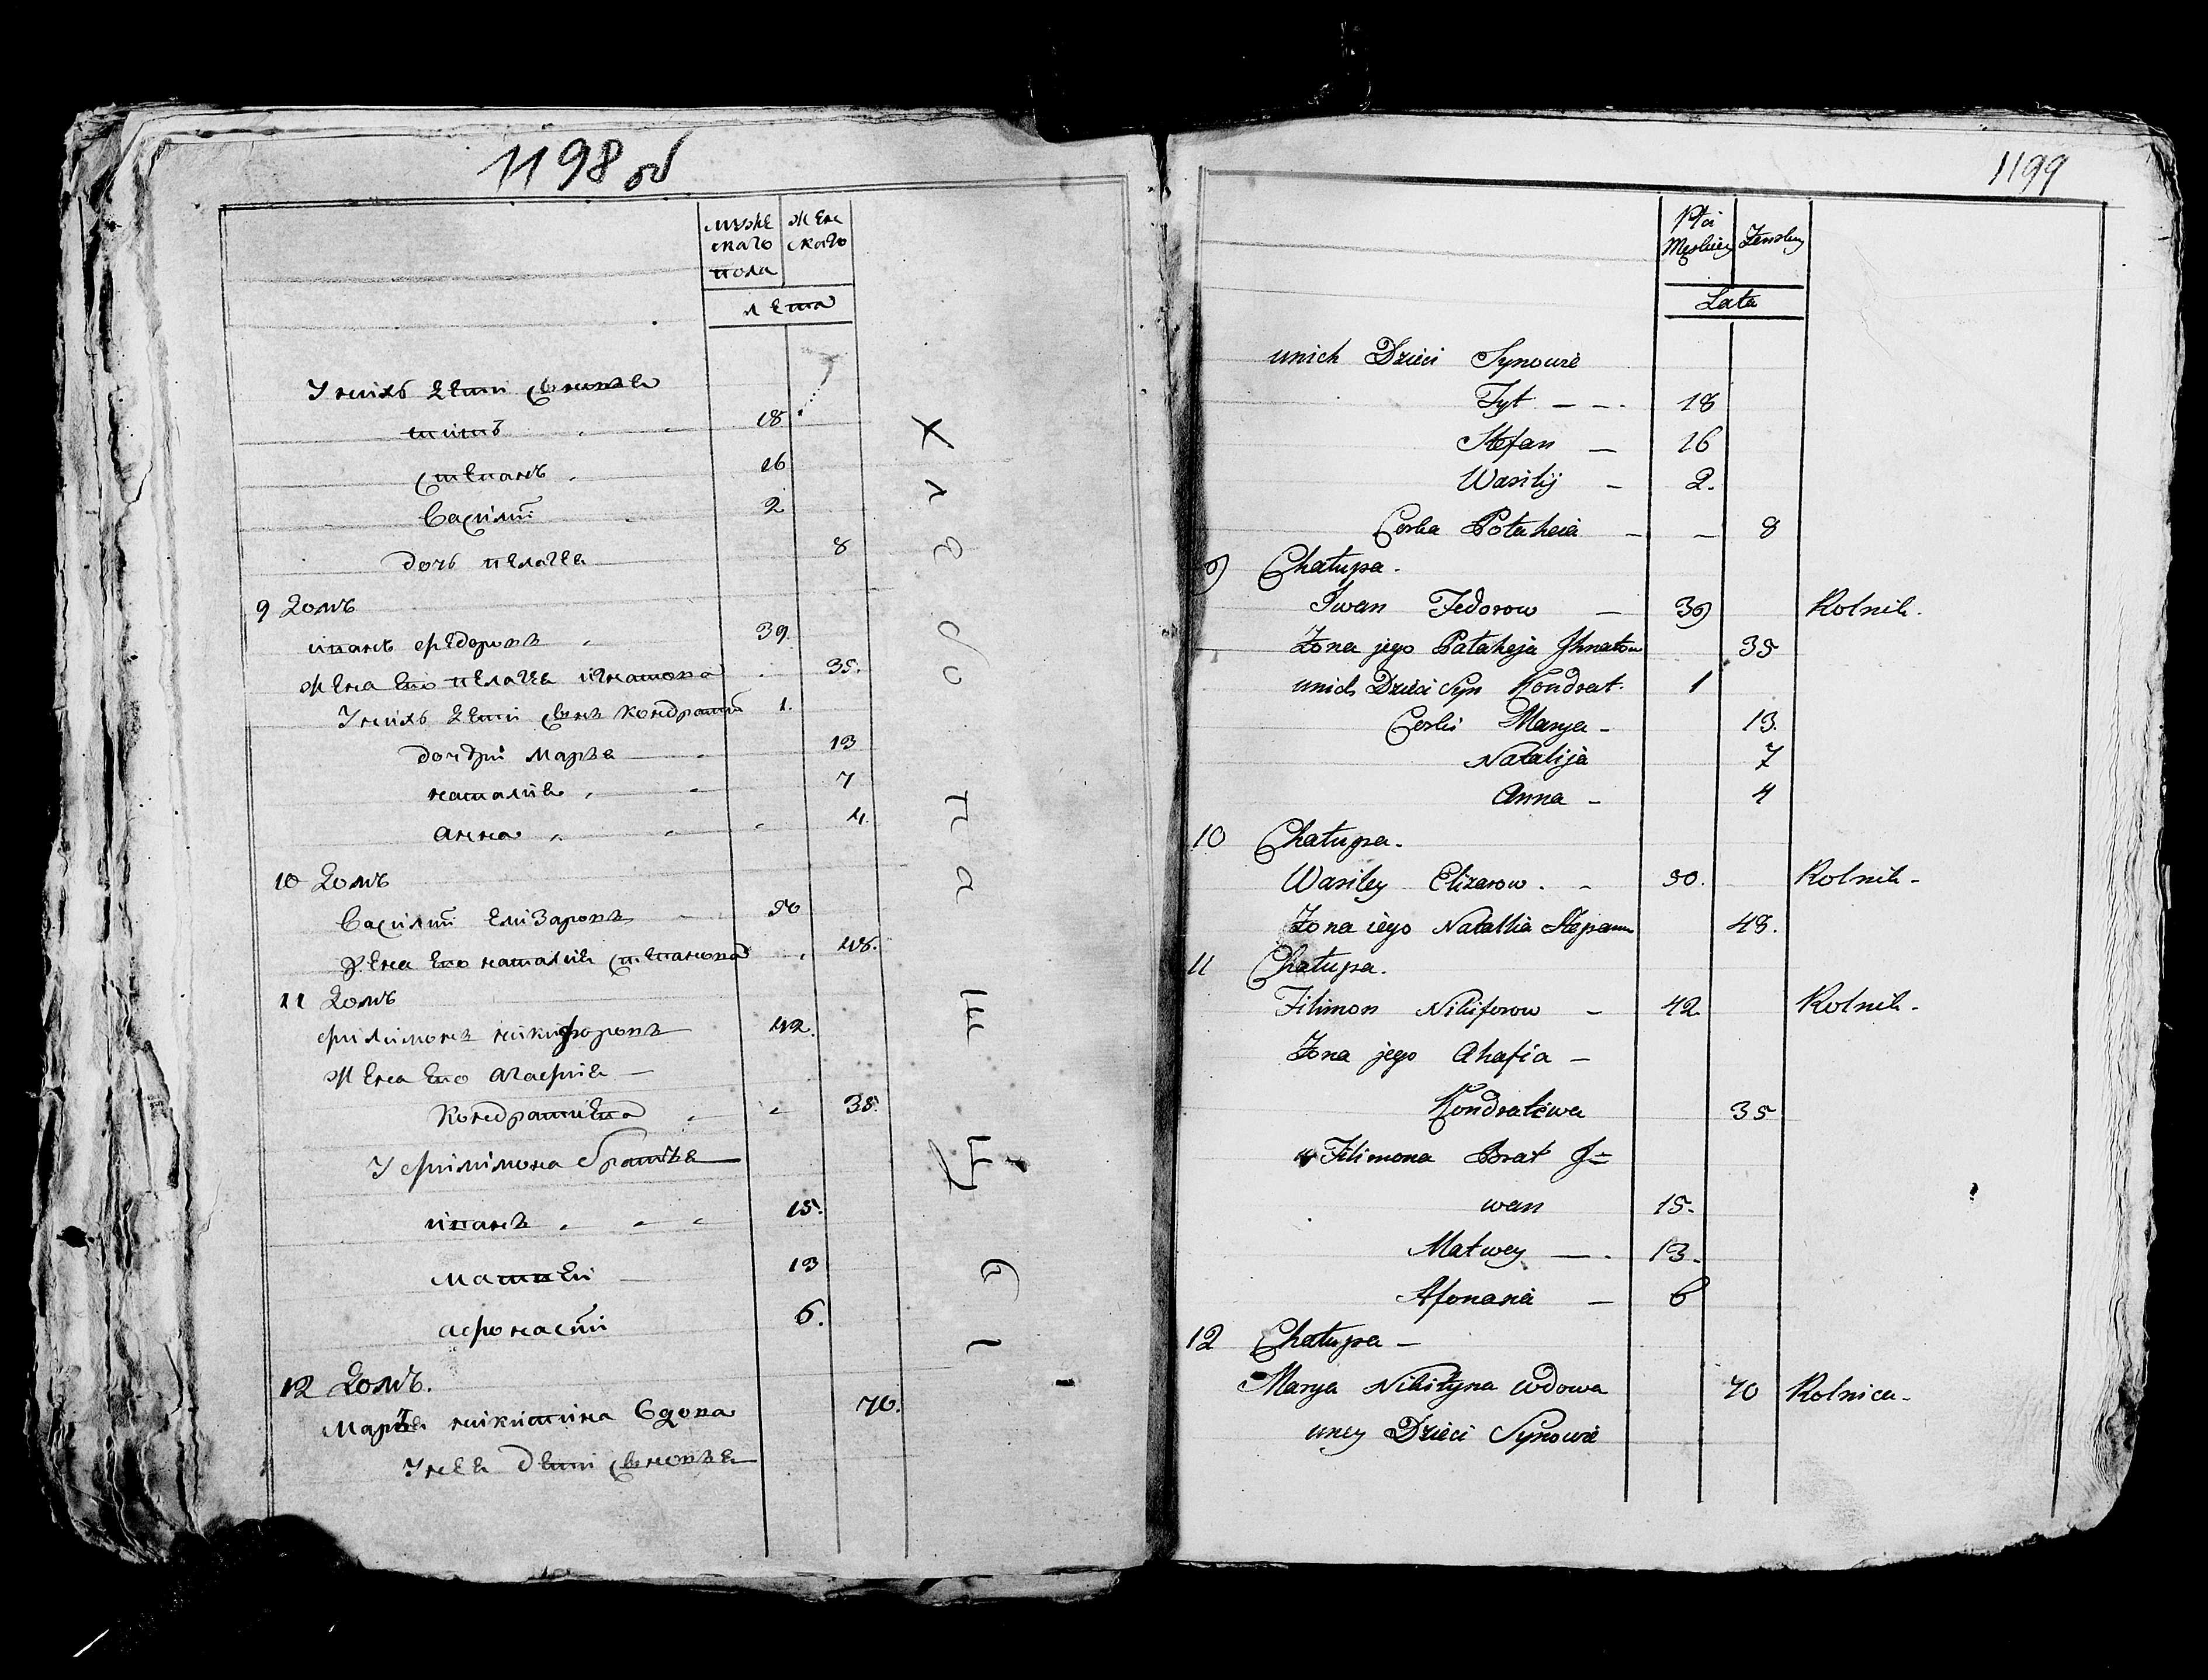 1198 об
муже Жен
скаго скаго
пола
лета
У нихъ Дети сыновъя
титъ 18
степанъ 16
Василий 2
дочь пелагея 8
9 Домъ
иванъ федоровъ 39.
Жена Ево пелагея игнатова 35.
У нихъ Дети сынъ Кондратий 1.
дочери маръя 13
наталия 7
анна 4.
10 Домъ
Василий Елизаровъ 50
Жена Ево наталия степанова 48.
11 Домъ
филимонъ никифоровъ 42.
Жена Ево агафия
Кондратиева 35.
У филимона братъя
иванъ 15.
матвеи 13
афонасий 6.
12 Домъ.
Маръя никитина вдова 70.
У нея дети сыновъя
Хлебопашецы
1199
Płci
Męskiey Zenskey
Lata
unich Dzieci Synowie
Tyt 18
Stefan 16
Wasilij 2.
Corka Pałaheia 8
9 Chałupa.
Iwan Fedorow 39 Rolnik.
Zona jego Pałaheja Ihnatow 35
unich Dzieci Syn Kondrat. 1
Corki Marya 13.
Natalija 7
Anna 4
10 Chałupa.
Wasiley Elizarow. 50. Rolnik
Zona iego Natallia Stepanow 48.
11 Chałupa.
Filimon Nikiforow 42 Rolnik
Zona jego Ahafia
Kondratiewa 35
u Filimona Brat I=
wan 15.
Matwey 13.
Afonasia 6
12 Chałupa
Marya Nikityna wdowa 70 Rolnica
uney Dzieci Synowie